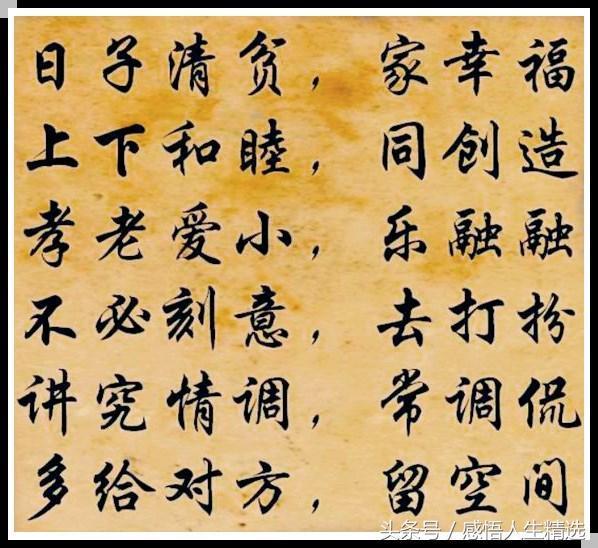 日子清贫，家幸福
上下和睦，同创造
孝老爱小，乐融融
不必刻意，去打扮
讲究情调，常调侃
多给对方，留空间
头条号 / 感悟人生精选